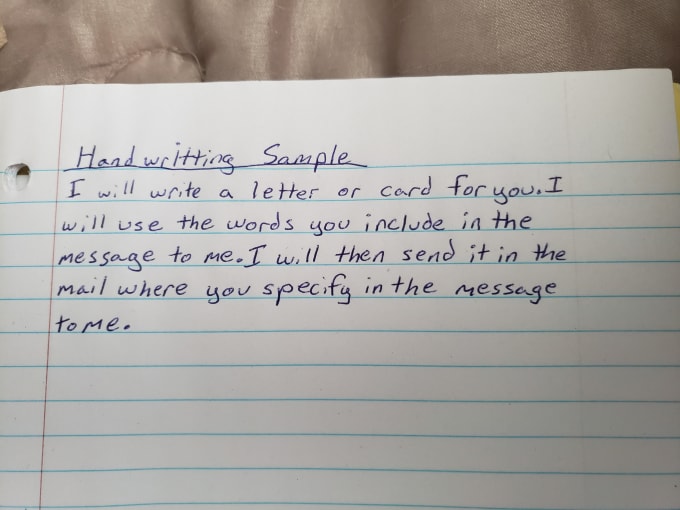 Handwritting Sample
I will write a letter or card for you. I
will use the words you include in the
message to me. I will then send it in the
mail where you specify in the message
to me.